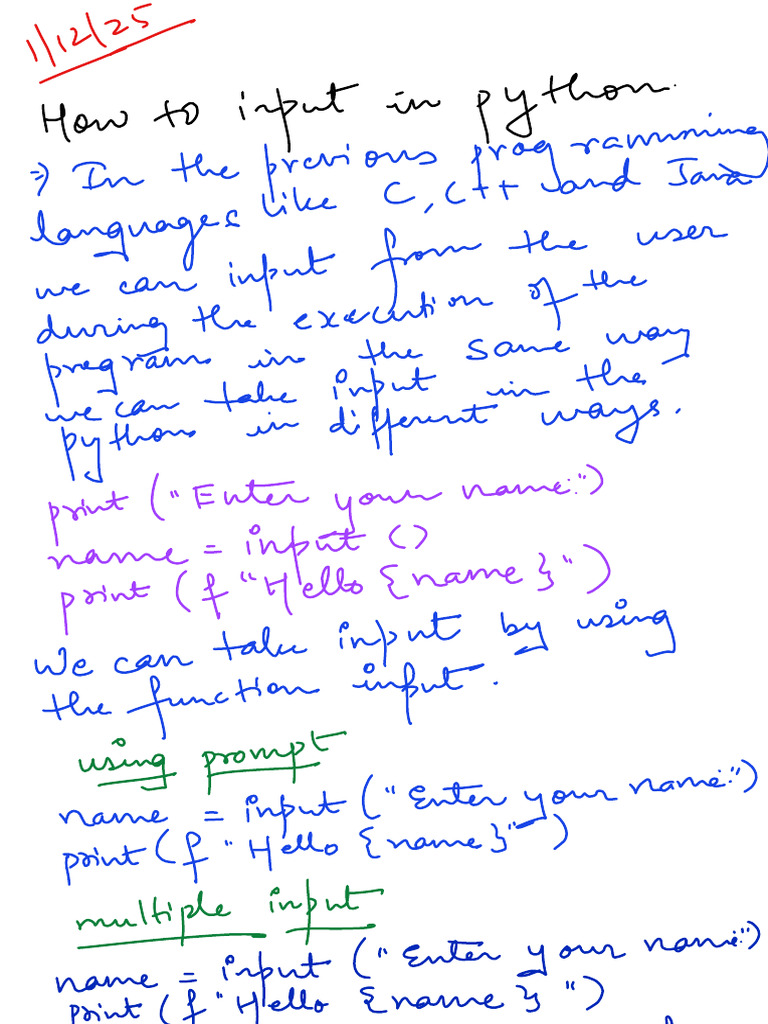 1/12/25
How to input in python.
⇒ In the previous programming
languages like C, C++ and Java
we can input from the user
during the execution of the
program in the same way
we can take input in the
python in different ways.
print ("Enter your name:")
name = input ()
print (f "Hello {name}")
We can take input by using
the function input.
using prompt
name = input ("Enter your name:")
print (f "Hello {name}")
multiple input
name = input ("Enter your name:")
print (f "Hello {name}")